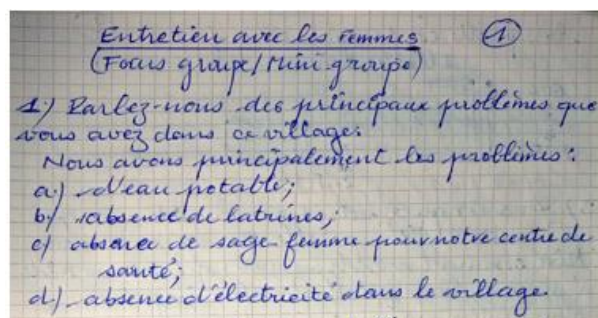 Entretien avec les Femmes ①
(Focus groupe/Mini groupe)
1) Parlez-nous des principaux problèmes que
vous avez dans ce village.
Nous avons principalement les problèmes :
a) d'eau potable;
b) absence de latrines;
c) absence de sage femme pour notre centre de
santé;
d) absence d'électricité dans le village.